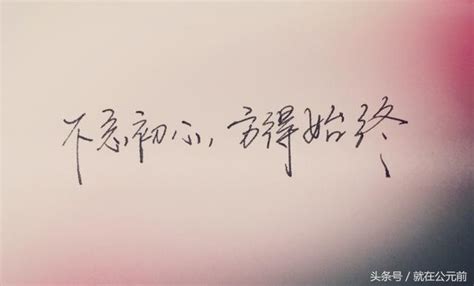 不忘初心，方得始终
头条号 / 就在公元前